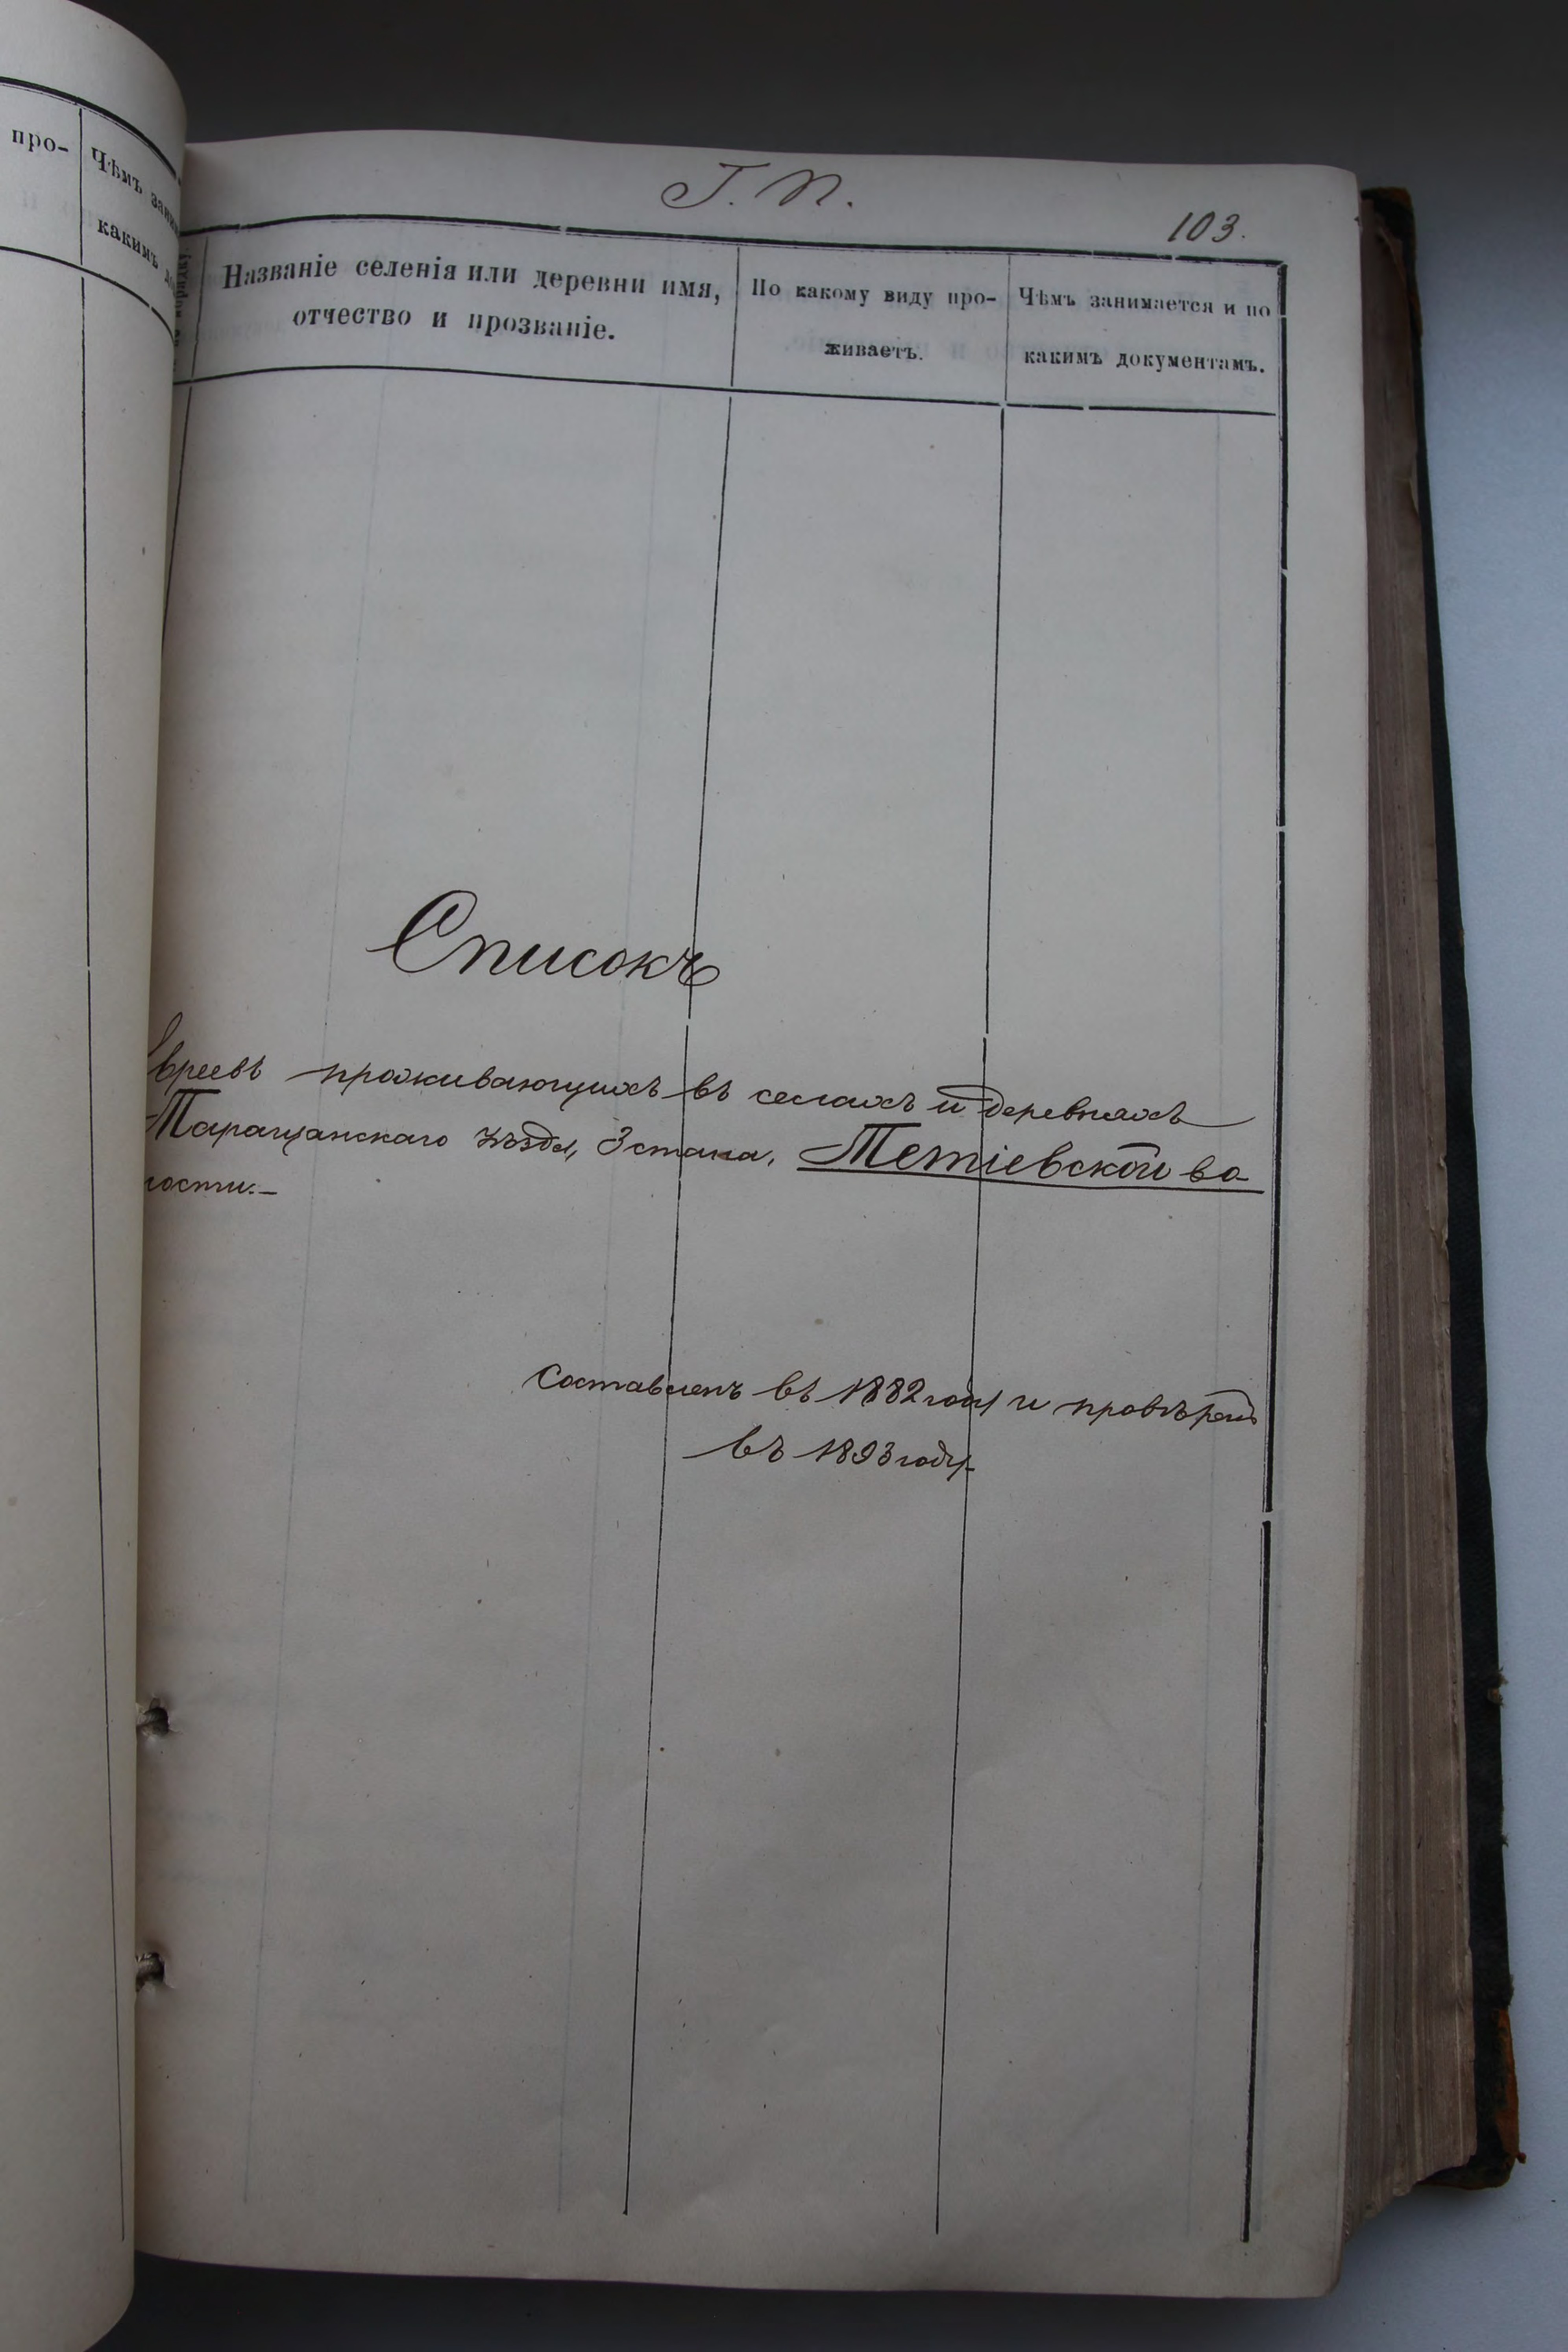 про-
Чѣмъ
какимъ
Т. П.
103.
Названіе селенія или деревни имя,
отчество и прозваніе.
По какому виду про-
живаетъ.
Чѣмъ занимается и по
какимъ документамъ.
Списокъ
Евреевъ проживающихъ въ селахъ и деревняхъ
Таращанскаго уѣзда, 3 стана, Тетіевской во-
лости.-
Составленъ въ 1882 году и провѣренъ
въ 1893 году.